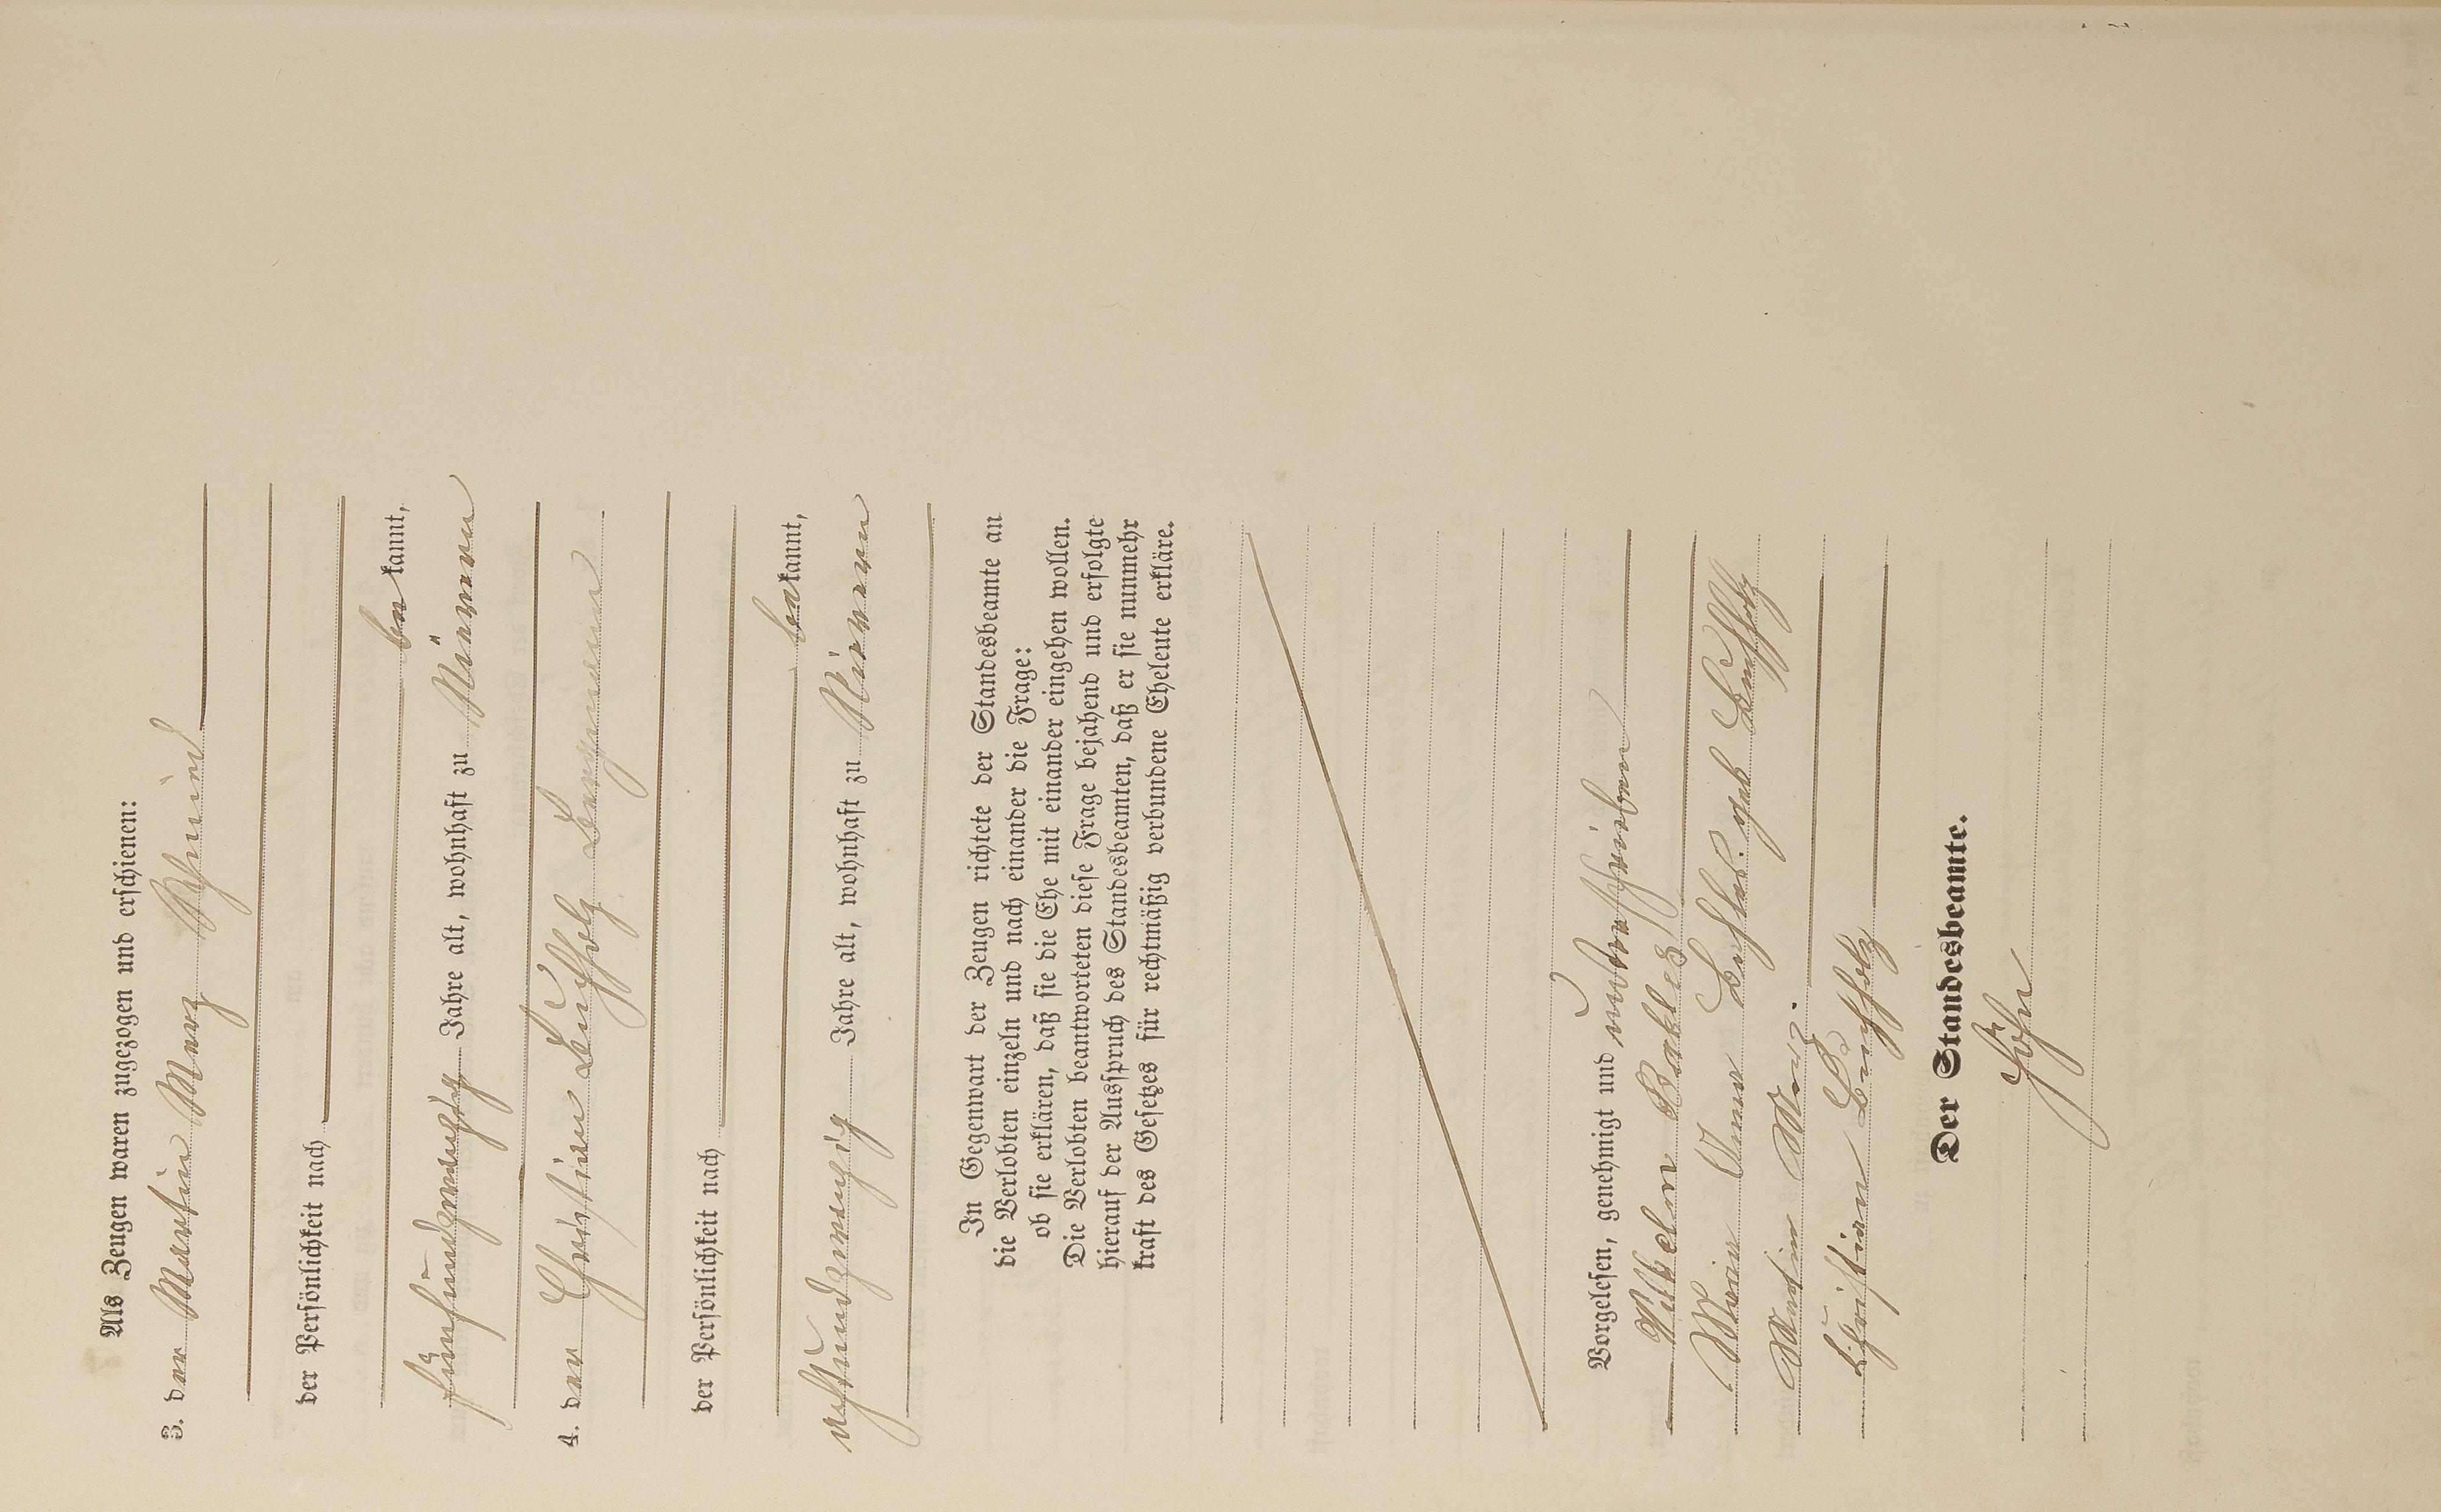 Als Zeugen waren zugezogen und erschienen:
3. der Martin Merz Schmied
der Persönlichkeit nach
be kannt,
fünfundzwanzig Jahre alt, wohnhaft zu
4. der Christian Buchholz Bergmann
der Persönlichkeit nach
be kannt,
achtundzwanzig Jahre alt, wohnhaft zu
In Gegenwart der Zeugen richtete der Standesbeamte an
die Verlobten einzeln und nach einander die Frage:
ob sie erklären, daß sie die Ehe mit einander eingehen wollen.
Die Verlobten beantworteten diese Frage bejahend und erfolgte
hierauf der Ausspruch des Standesbeamten, daß er sie nunmehr
kraft des Gesetzes für rechtmäßig verbundene Eheleute erkläre.
Vorgelesen, genehmigt und unterschrieben
Wilhelm
Anna geb. Buchholz
Martin Merz.
Christian Buchholz
Der Standesbeamte.